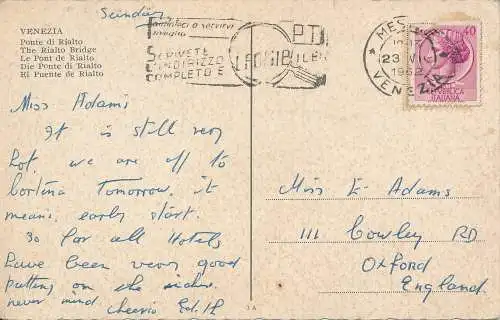 Sunday
VENEZIA
Ponte di Rialto
The Rialto Bridge
Le Pont de Rialto
Die Ponte di Rialto
El Puente de Rialto
SCRIVETE
L'INDIRIZZO
COMPLETO E
PT
MES
23
1962
VENEZIA
40
ITALIANA
Miss Adams
It is still very
hot. we are off to
Cortina Tomorrow. it
means early start.
so far all Hotels
have been very good
putting on the
never mind Cheerio
Miss E Adams
111 Cowley RD
Oxford
England